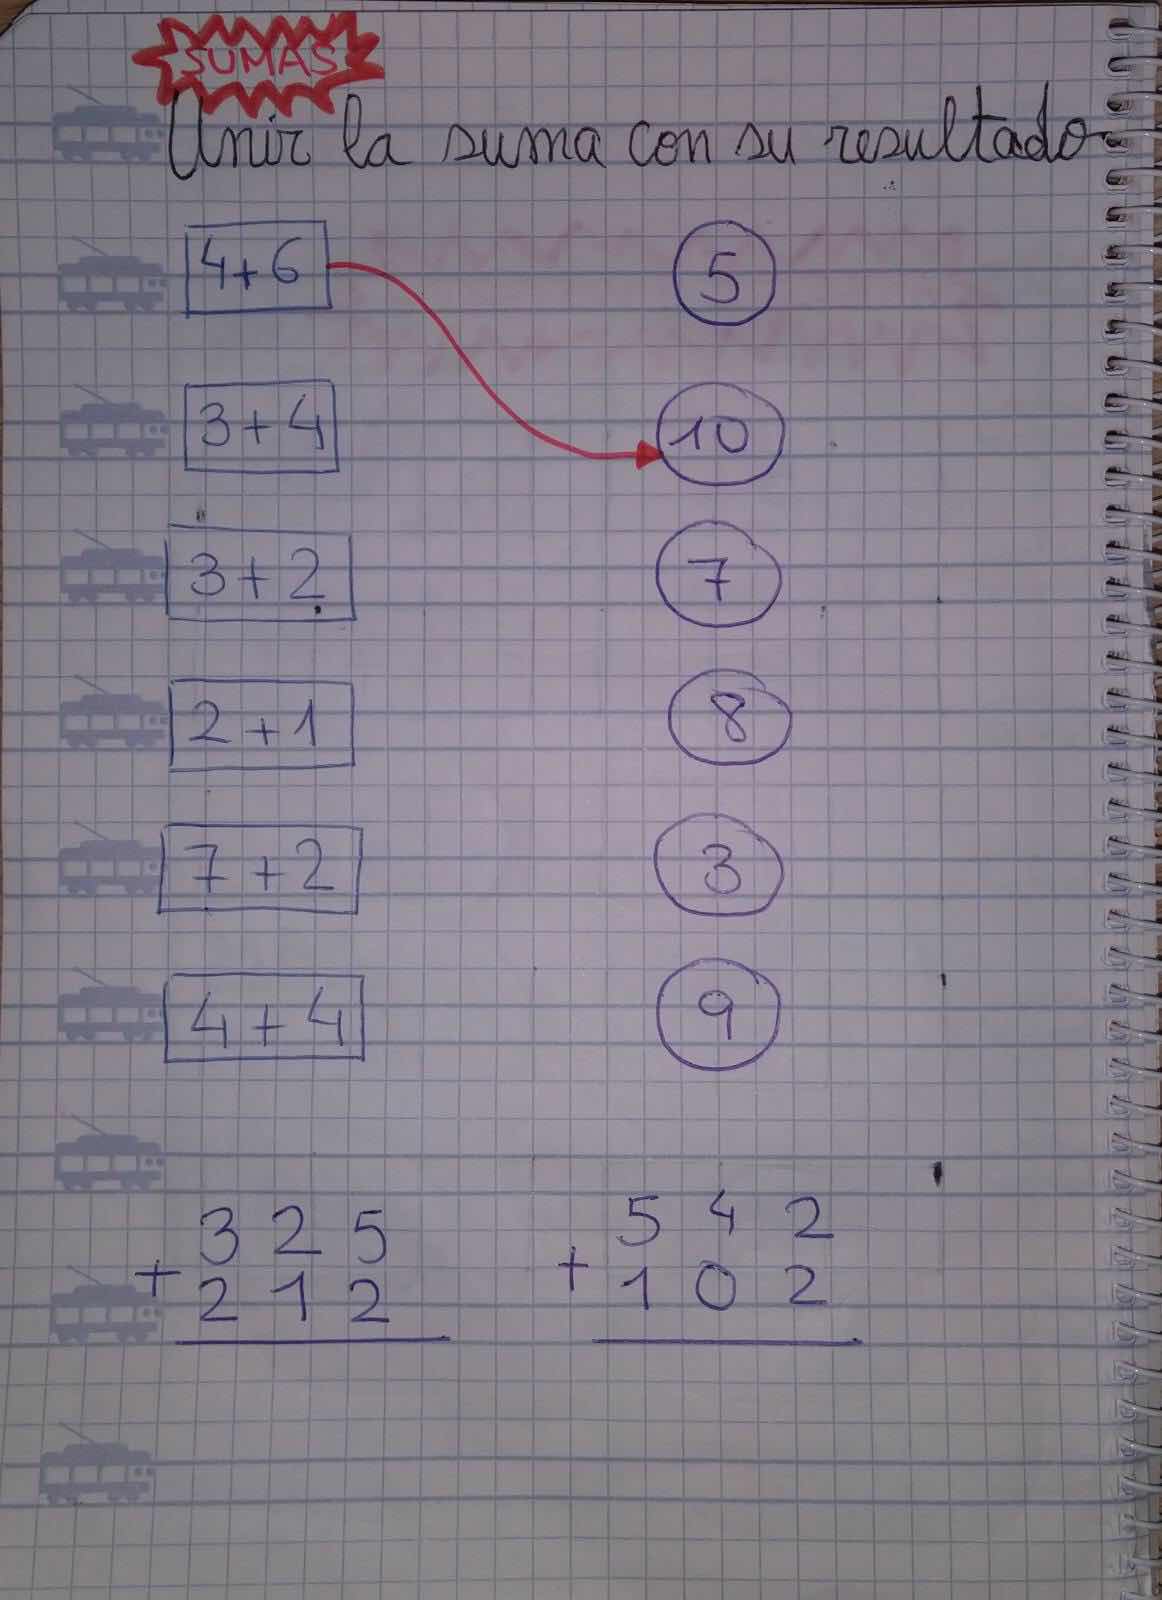 SUMAS
Unir la suma con su resultado
4+6 5
3+4 10
3+2 7
2+1 8
7+2 3
4+4 9
325 542
+212 +102